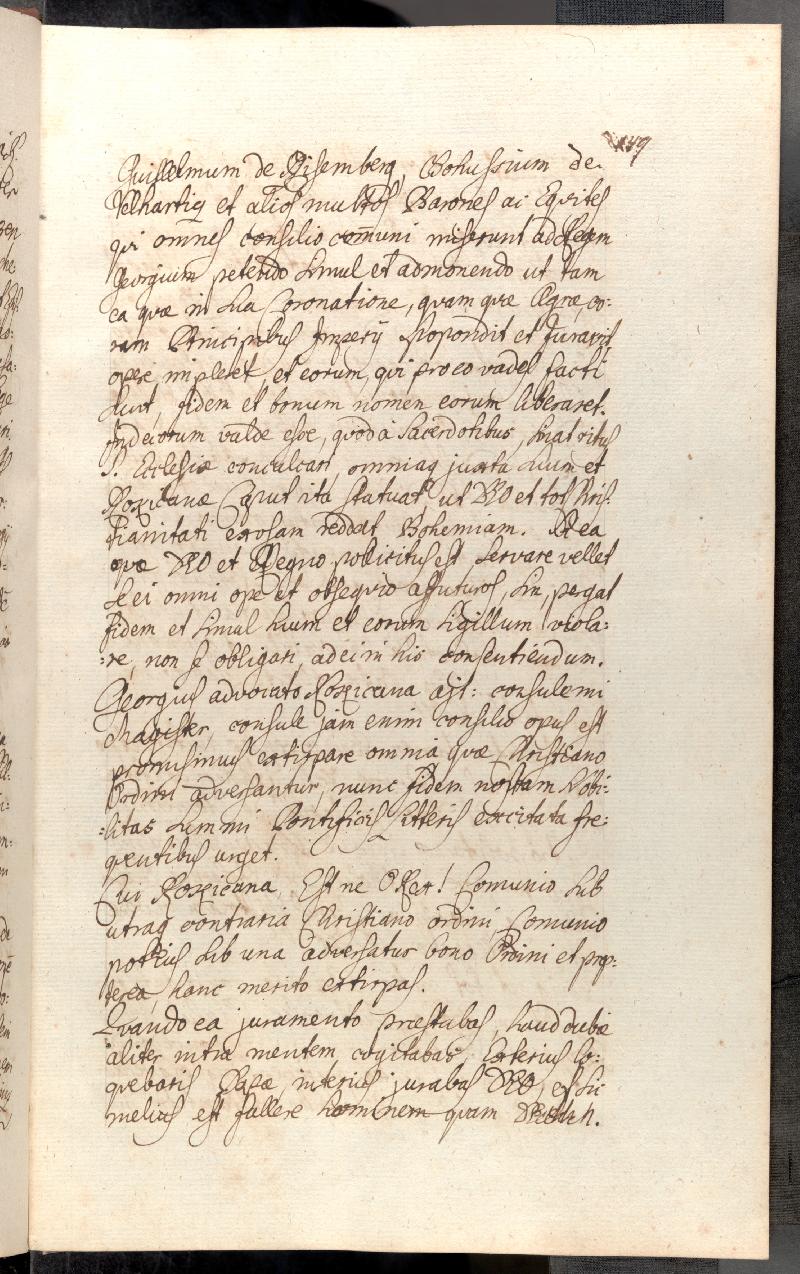 159
Guillelmum de Risemberg, Bohussium de
Velhartig et alios multos Barones ac Equites
qui omnes consilio com̄uni miserunt ad Regem
Georgium petendo simul et admonendo ut tam
ea quæ in sua Coronatione, quam quæ Egræ, co:
ram Principibus Imperij spopondit et Juravit
opere impleret, et eorum, qui pro eo vades facti
sunt, fidem et bonum nomen eorum liberaret.
Indecorum valde esse, quod à Sacerdotibus, ritus
S. Ecclesiæ conculcari, omniaq juxta suum et
Roxicanæ Caput ita statuat ut DEO et toti Xris:
tianitati exosam reddat Bohemiam. Si ea
quæ DEO et Regno pollicitus est servare vellet
se ei omni ope et obsequio affuturos, sin, pergat
fidem et simul suum et eorum sigillum viola:
:re, non se obligari, ad ei in his consentiendum.
Georgius advocato Roxicana ajt: consule mi
Magister, consule jam enim consilio opus est
promisimus extirpare omnia quæ Christiano
Ordini adversantur, nunc fidem nostam Nobi:
:litas summi Pontificis litteris excitata fre:
qentibus urget.
Cui Roxicana, Est ne O Rex! Comunio sub
utraq contraria Christiano ordini Comunio
potius sub una adversatur bono Ordini et prop:
terea, hanc merito extirpas.
Quando ea juramento præstabas, haud dubie
aliter intra mentem cogitabas, Exterius lo:
quebaris Papæ, interius jurabas DEO,
melius est fallere hominem quam DEUM.